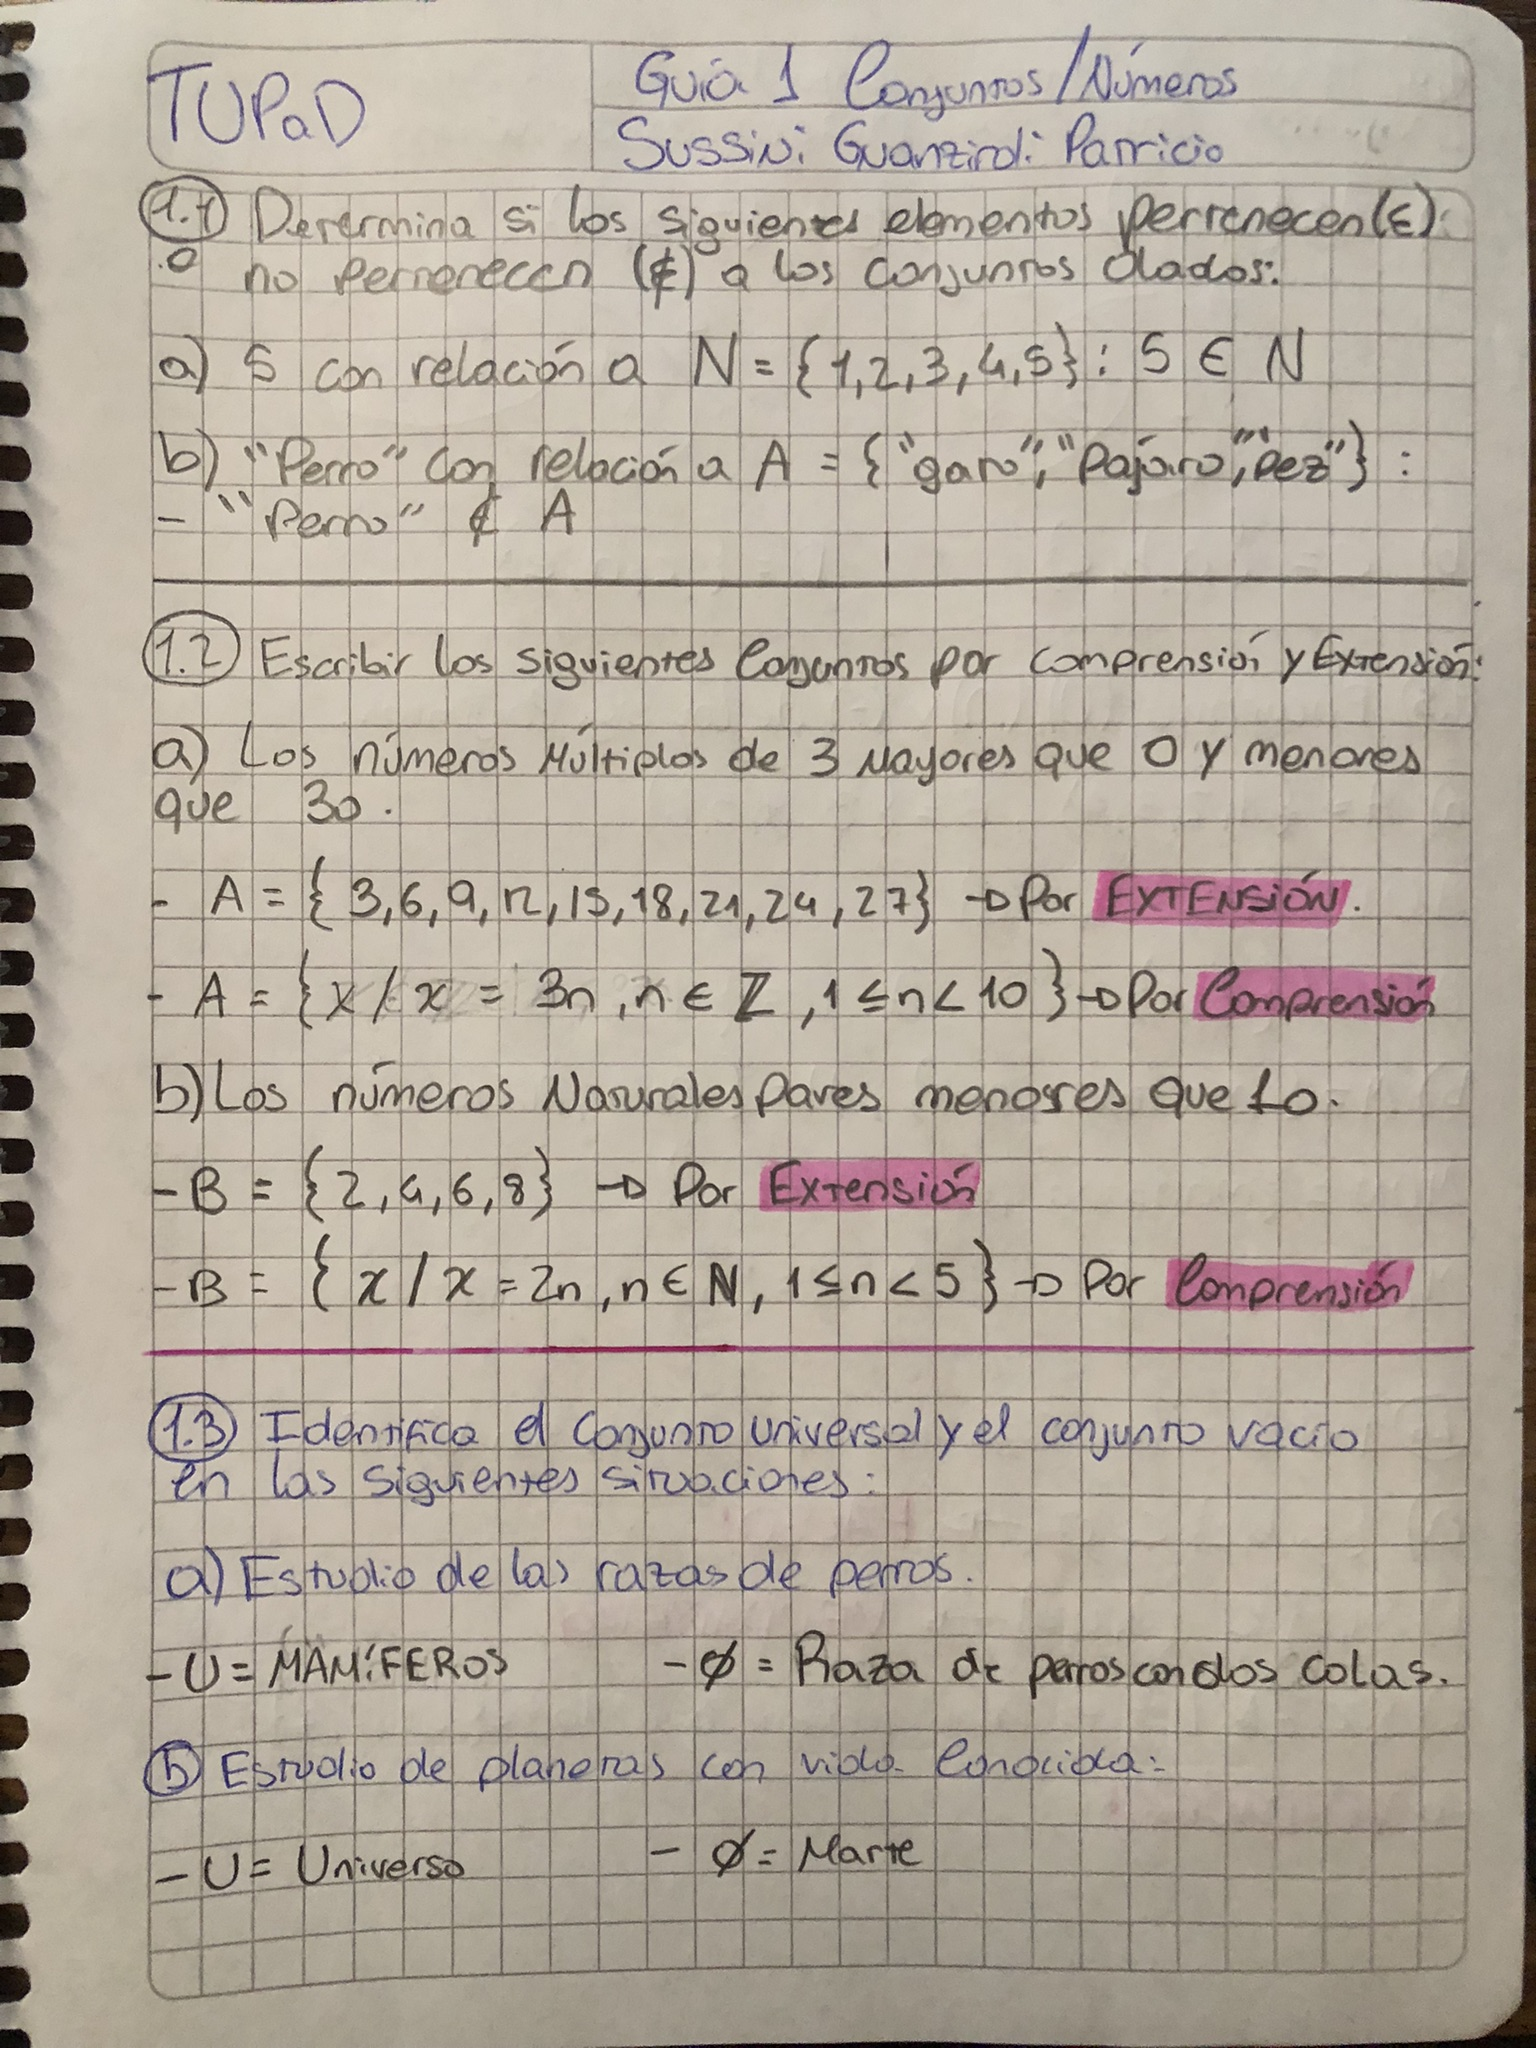 TUPaD
Guía 1 Conjuntos/Números
Sussini Guanziroli Patricio
1.1 Determina si los siguientes elementos pertenecen (∈)
o no pertenecen (∉) a los conjuntos dados:
a) 5 con relación a N = {1,2,3,4,5} : 5 ∈ N
b) "Perro" con relación a A = {"gato", "Pajáro", "pez"} :
- "Perro" ∉ A
1.2 Escribir los siguientes Conjuntos por comprensión y Extensión:
a) Los números Múltiplos de 3 Mayores que 0 y menores
que 30.
- A = {3,6,9,12,15,18,21,24,27} → Por EXTENSIÓN.
- A = {x / x = 3n, n ∈ ℤ, 1 ≤ n < 10} → Por Comprensión
b) Los números Naturales Pares menores que 10.
- B = {2,4,6,8} → Por Extensión
- B = {x / x = 2n, n ∈ ℕ, 1 ≤ n < 5} → Por Comprensión
1.3 Identifica el Conjunto Universal y el conjunto vacío
en las siguientes situaciones:
a) Estudio de las razas de perros.
- U = MAMÍFEROS - ∅ = Raza de perros con dos colas.
b) Estudio de planetas con vida Conocida:
- U = Universo - ∅ = Marte